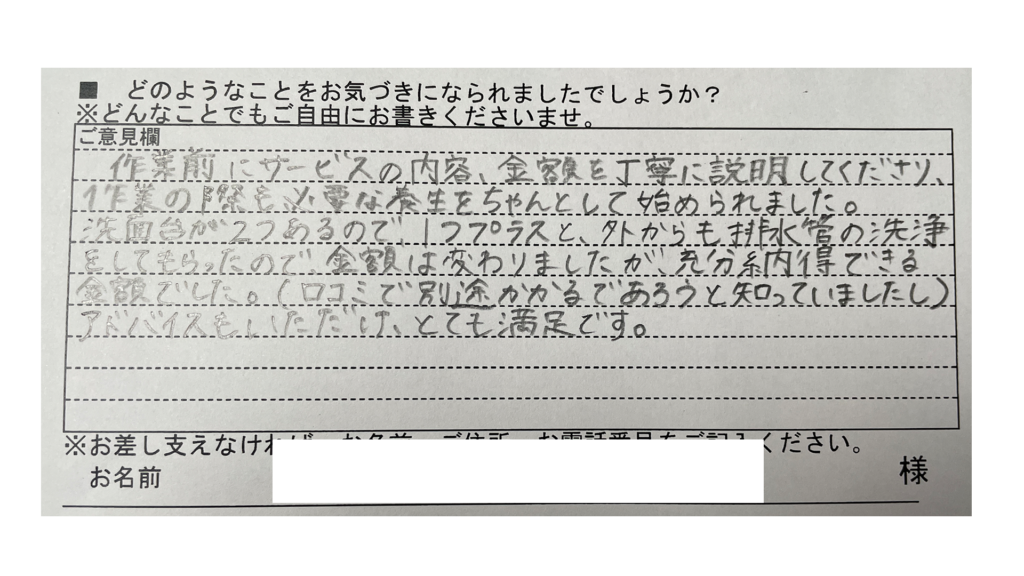 ■ どのようなことをお気づきになられましたでしょうか？
※どんなことでもご自由にお書きくださいませ。
ご意見欄
作業前にサービスの内容、金額を丁寧に説明してくださり、
作業の際も必要な養生をちゃんとして始められました。
洗面台が2つあるので、1つプラスと、外からも排水管の洗浄
をしてもらったので、金額は変わりましたが、充分納得できる
金額でした。(口コミで別途かかるであろうと知っていましたし)
アドバイスもいただけ、とても満足です。
※お差し支えなければ、お名前、ご住所、お電話番号をご記入ください。
お名前 様